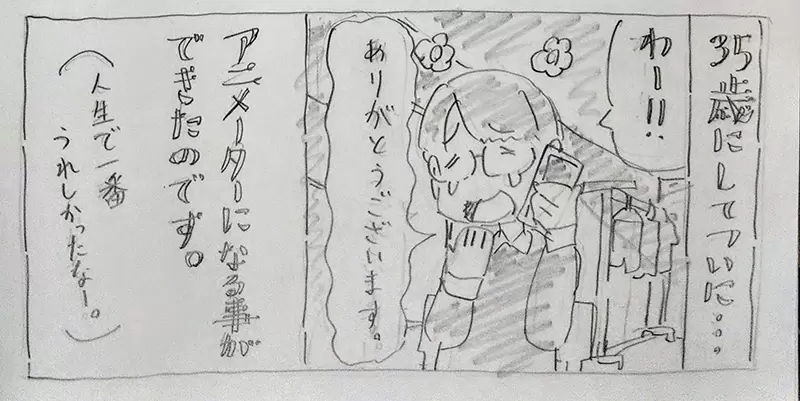 35歳にしてついに…
わー!!
ありがとうございます。
アニメーターになる事が
できたのです。
(人生で一番
うれしかったなー。)